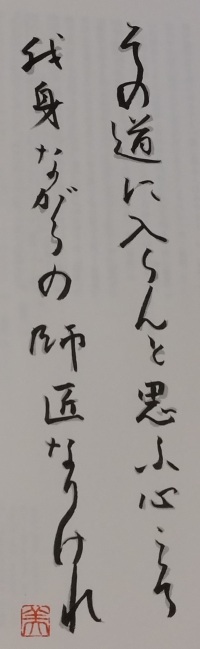 その道に入らんと思ふ心こそ
我身ながらの師匠なりけれ
美